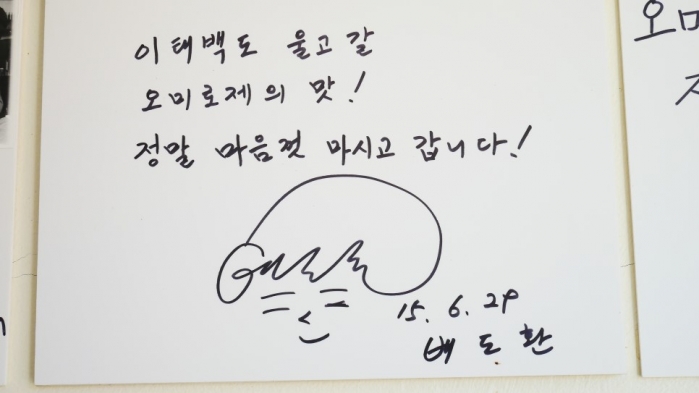 이태백도 울고갈
오미로제의 맛!
정말 마음껏 마시고 갑니다!
15. 6. 29
배도환
오미